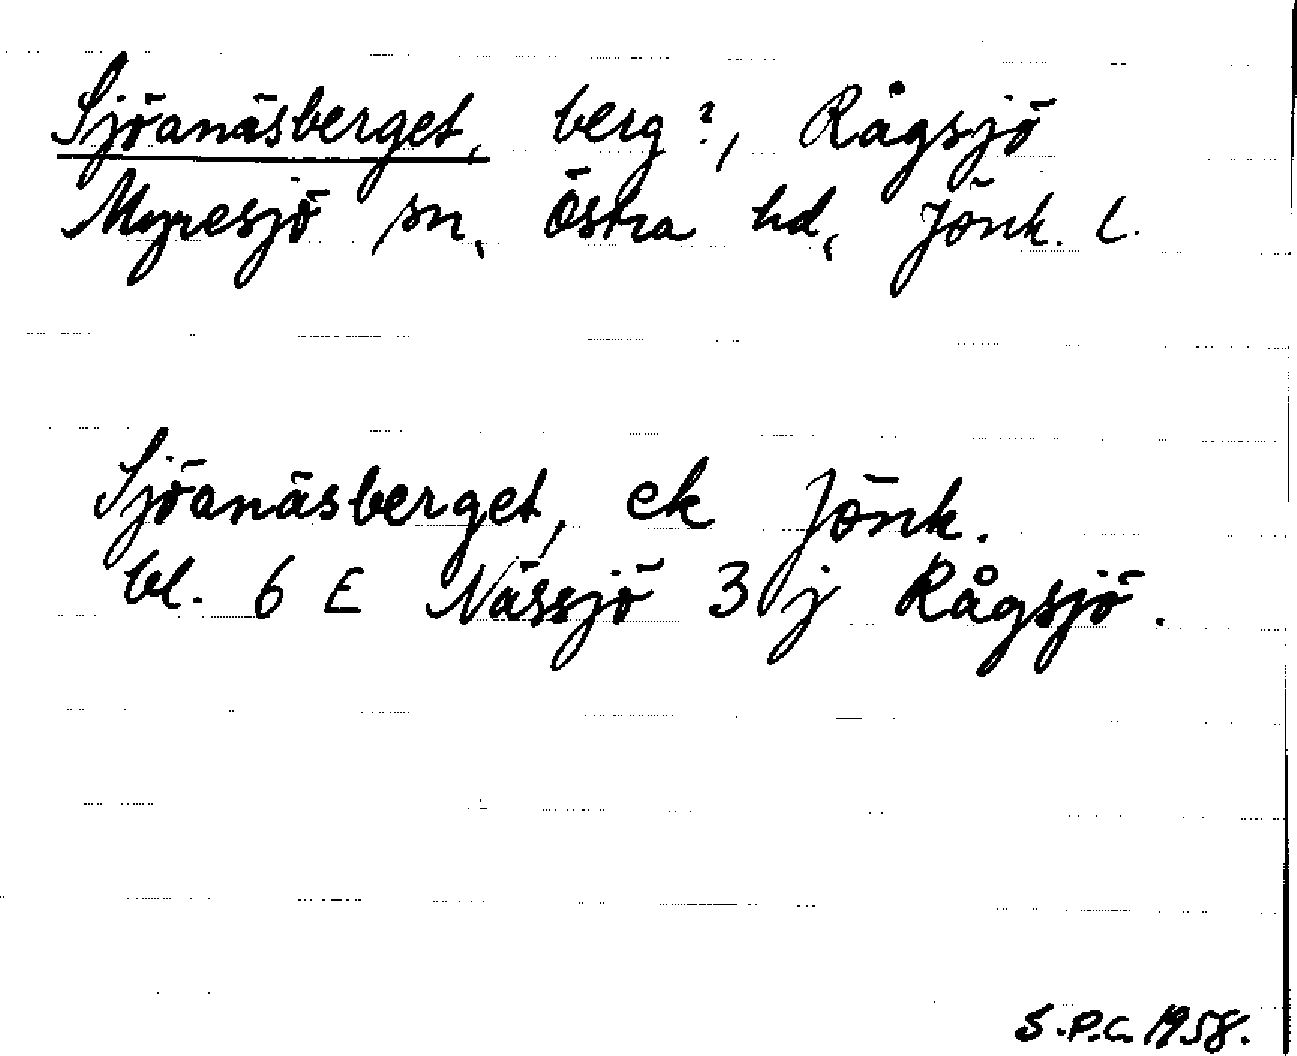 Sjöanäsberget, berg?, Rågsjö
Myresjö sn, Östra hd, Jönk. l.
Sjöanäsberget, ek Jönk.
bl. 6 E Nässjö 3 j Rågsjö.
S.P.C. 1958.